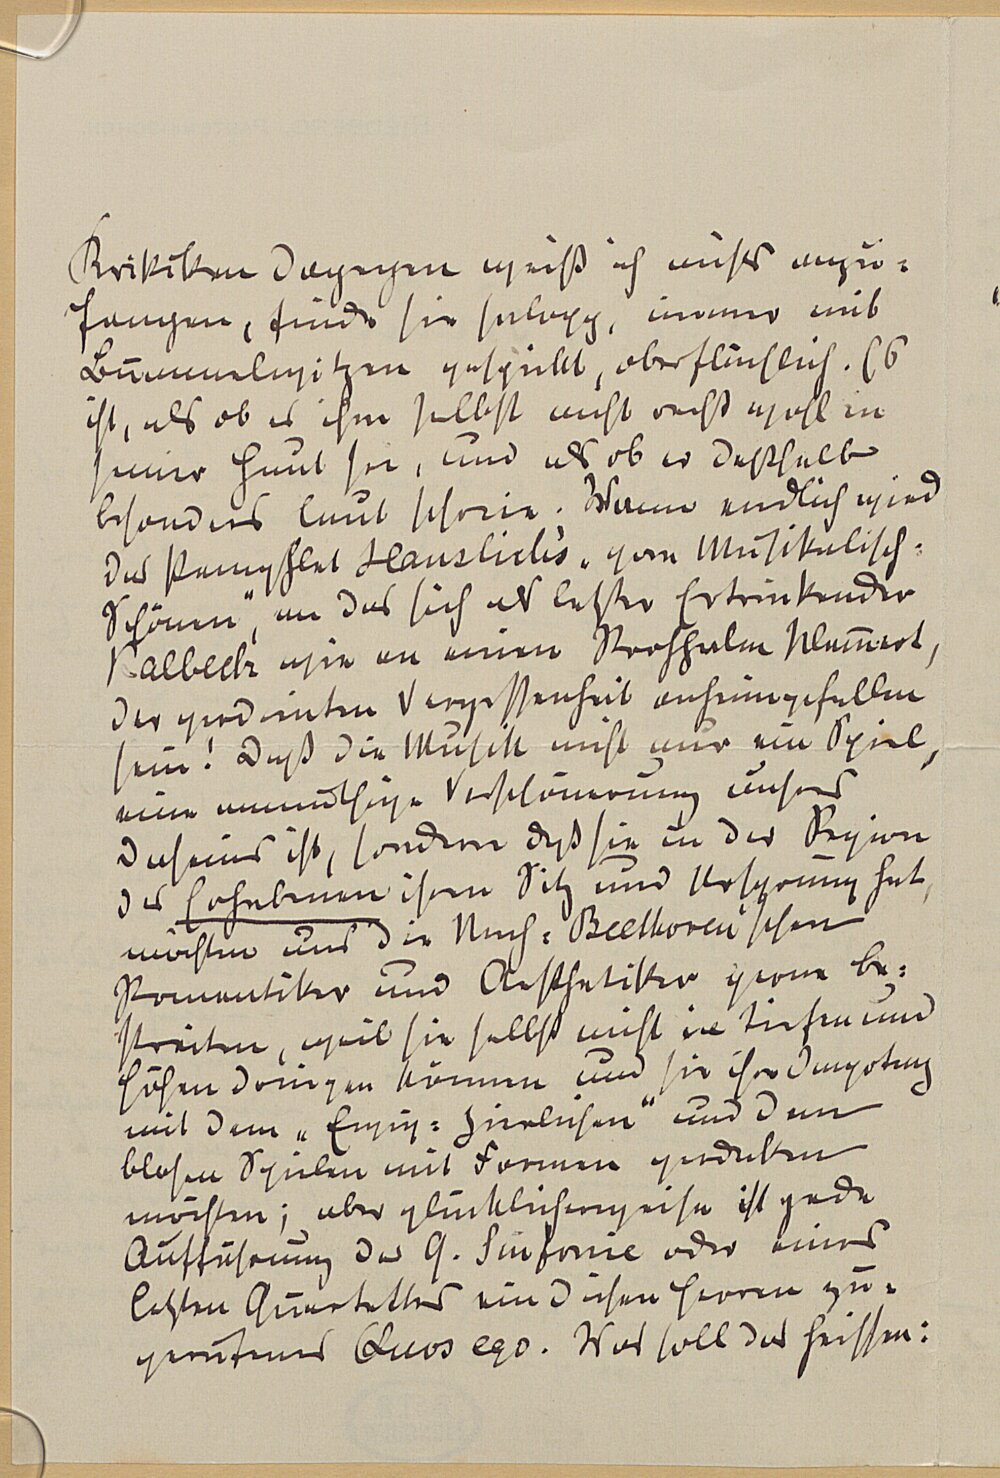 Kritiken dagegen weiß ich nichts anzu-
fangen, finde sie salopp, immer mit
Bummelwitzen gespickt, oberflächlich. Es
ist, als ob es ihm selbst nicht recht wohl in
seiner Haut sei, und als ob er deßhalb
besonders laut schrie. Wann endlich wird
das Pamphlet Hanslick's „vom Musikalisch-
Schönen“, an das sich als letzter Ertrinkender
Kalbeck wie an einen Strohhalm klammert,
der verdienten Vergessenheit anheimgefallen
sein! Daß die Musik nicht nur ein Spiel,
eine anmuthige Verschönerung unseres
Daseins ist, sondern daß sie in der Region
des Erhabenen ihren Sitz und Ursprung hat,
möchten uns die Nach-Beethoven'schen
Romantiker und Aesthetiker gerne be-
streiten, weil sie selbst nicht in Tiefen und
Höhen dringen können und sie ihre Impotenz
mit dem „ zierlichen“ und dem
blosen Spielen mit Formen verdecken
möchten; aber glücklicherweise ist jede
Aufführung der 9. Sinfonie oder eines
letzten Quartettes ein diesen Herren zu-
gerufenes Quos ego. Was soll das heissen: